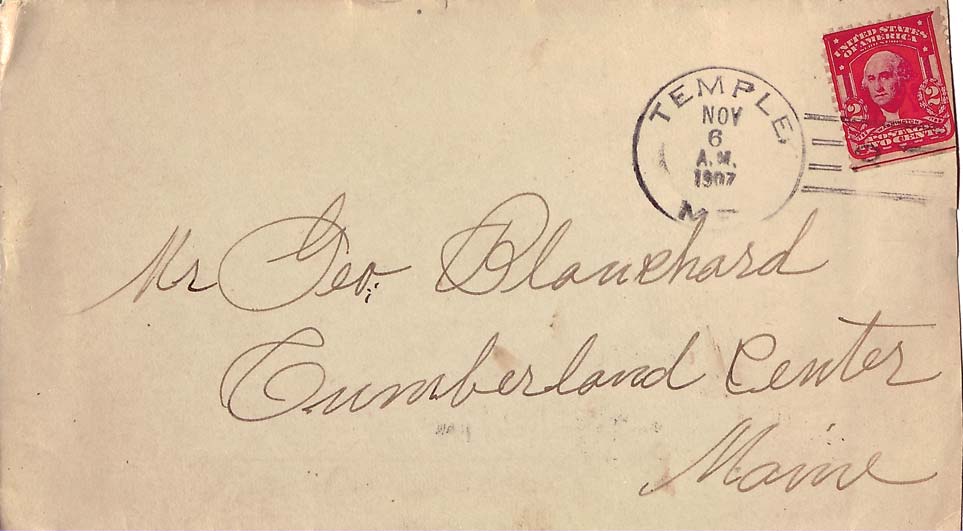 UNITED STATES
OF AMERICA
2 2
POSTAGE
TWO CENTS
TEMPLE,
NOV
6
A.M.
1907
ME
Mr Geo. Blanchard
Cumberland Center
Maine